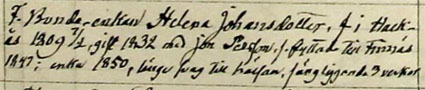 F. Bonde-enkan Helena Johansdotter, f. i Hack-
ås 1809 7/2, gift 1832 med Jon Persson, f. flyttade till
1847; enka 1850, länge svag till hälsan, sängliggende 3 veckor